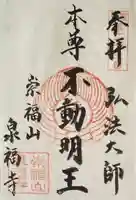 奉拝
弘法大師
本尊
不動明王
崇福山
泉福寺